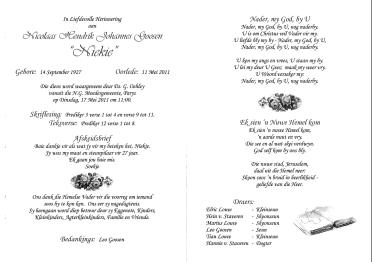 In Liefdevolle Herinnering
aan
Nicolaas Hendrik Johannes Goosen
"Niekie"
Gebore: 14 September 1927 Oorlede: 11 Mei 2011
Die diens word waargeneem deur Ds. G.
vanuit die N.G. Moedergemeente, Parys
op Dinsdag, 17 Mei 2011 om 11:00.
Skriflesing: Prediker 3 verse 1 tot 4 en verse 9 tot 11.
Teksverse: Prediker 12 verse 1 tot 8.
Afskeidsbrief
Baie dankie vir als wat jy vir my beteken het, Niekie.
Sy was my maat en steunpilaar vir 27 jaar.
Ek gaan jou baie mis.
Soekie
Ons dank die Hemelse Vader vir die voorreg om iemand
soos hy te kon ken. Ons eer sy nagedagtenis.
Sy heengaan word diep betreur deur sy Eggenote, Kinders,
Kleinkinders, Agterkleinkinders, Familie en Vriende.
Bedankings: Leo Goosen
Nader, my God, by U
Nader, my God, by U, nog naderby.
U is om Christus wil Vader vir my.
U liefde bly my by - Nader, my God, by U,
Nader, my God, by U, nog naderby.
U ken my angs en vrees, U staan my by.
U lei my deur U Gees; maak my weer vry.
U Woord verseker my:
Nader, my God, by U, nog naderby.
Ek sien 'n Nuwe Hemel kom
Ek sien 'n nuwe hemel kom,
'n aarde nuut en vry.
Die see en al wat skei verdwyn.
God self kom by ons bly.
Die nuwe stad, Jerusalem,
daal uit die hemel neer:
Skoon soos 'n bruid in heerlikheid -
geliefde van die Heer.
Draers:
Edric Louw - Kleinseun
Hein v. Staveren - Skoonseun
Marius Louw - Skoonseun
Leo Goosen - Seun
Tian Louw - Kleinseun
Hannie v. Staveren - Dogter